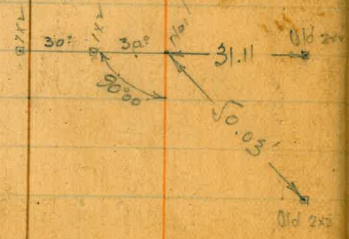 1x2 30° 1x2 30° 31.11 Old 2x2
90°00
50.03
Old 2x2